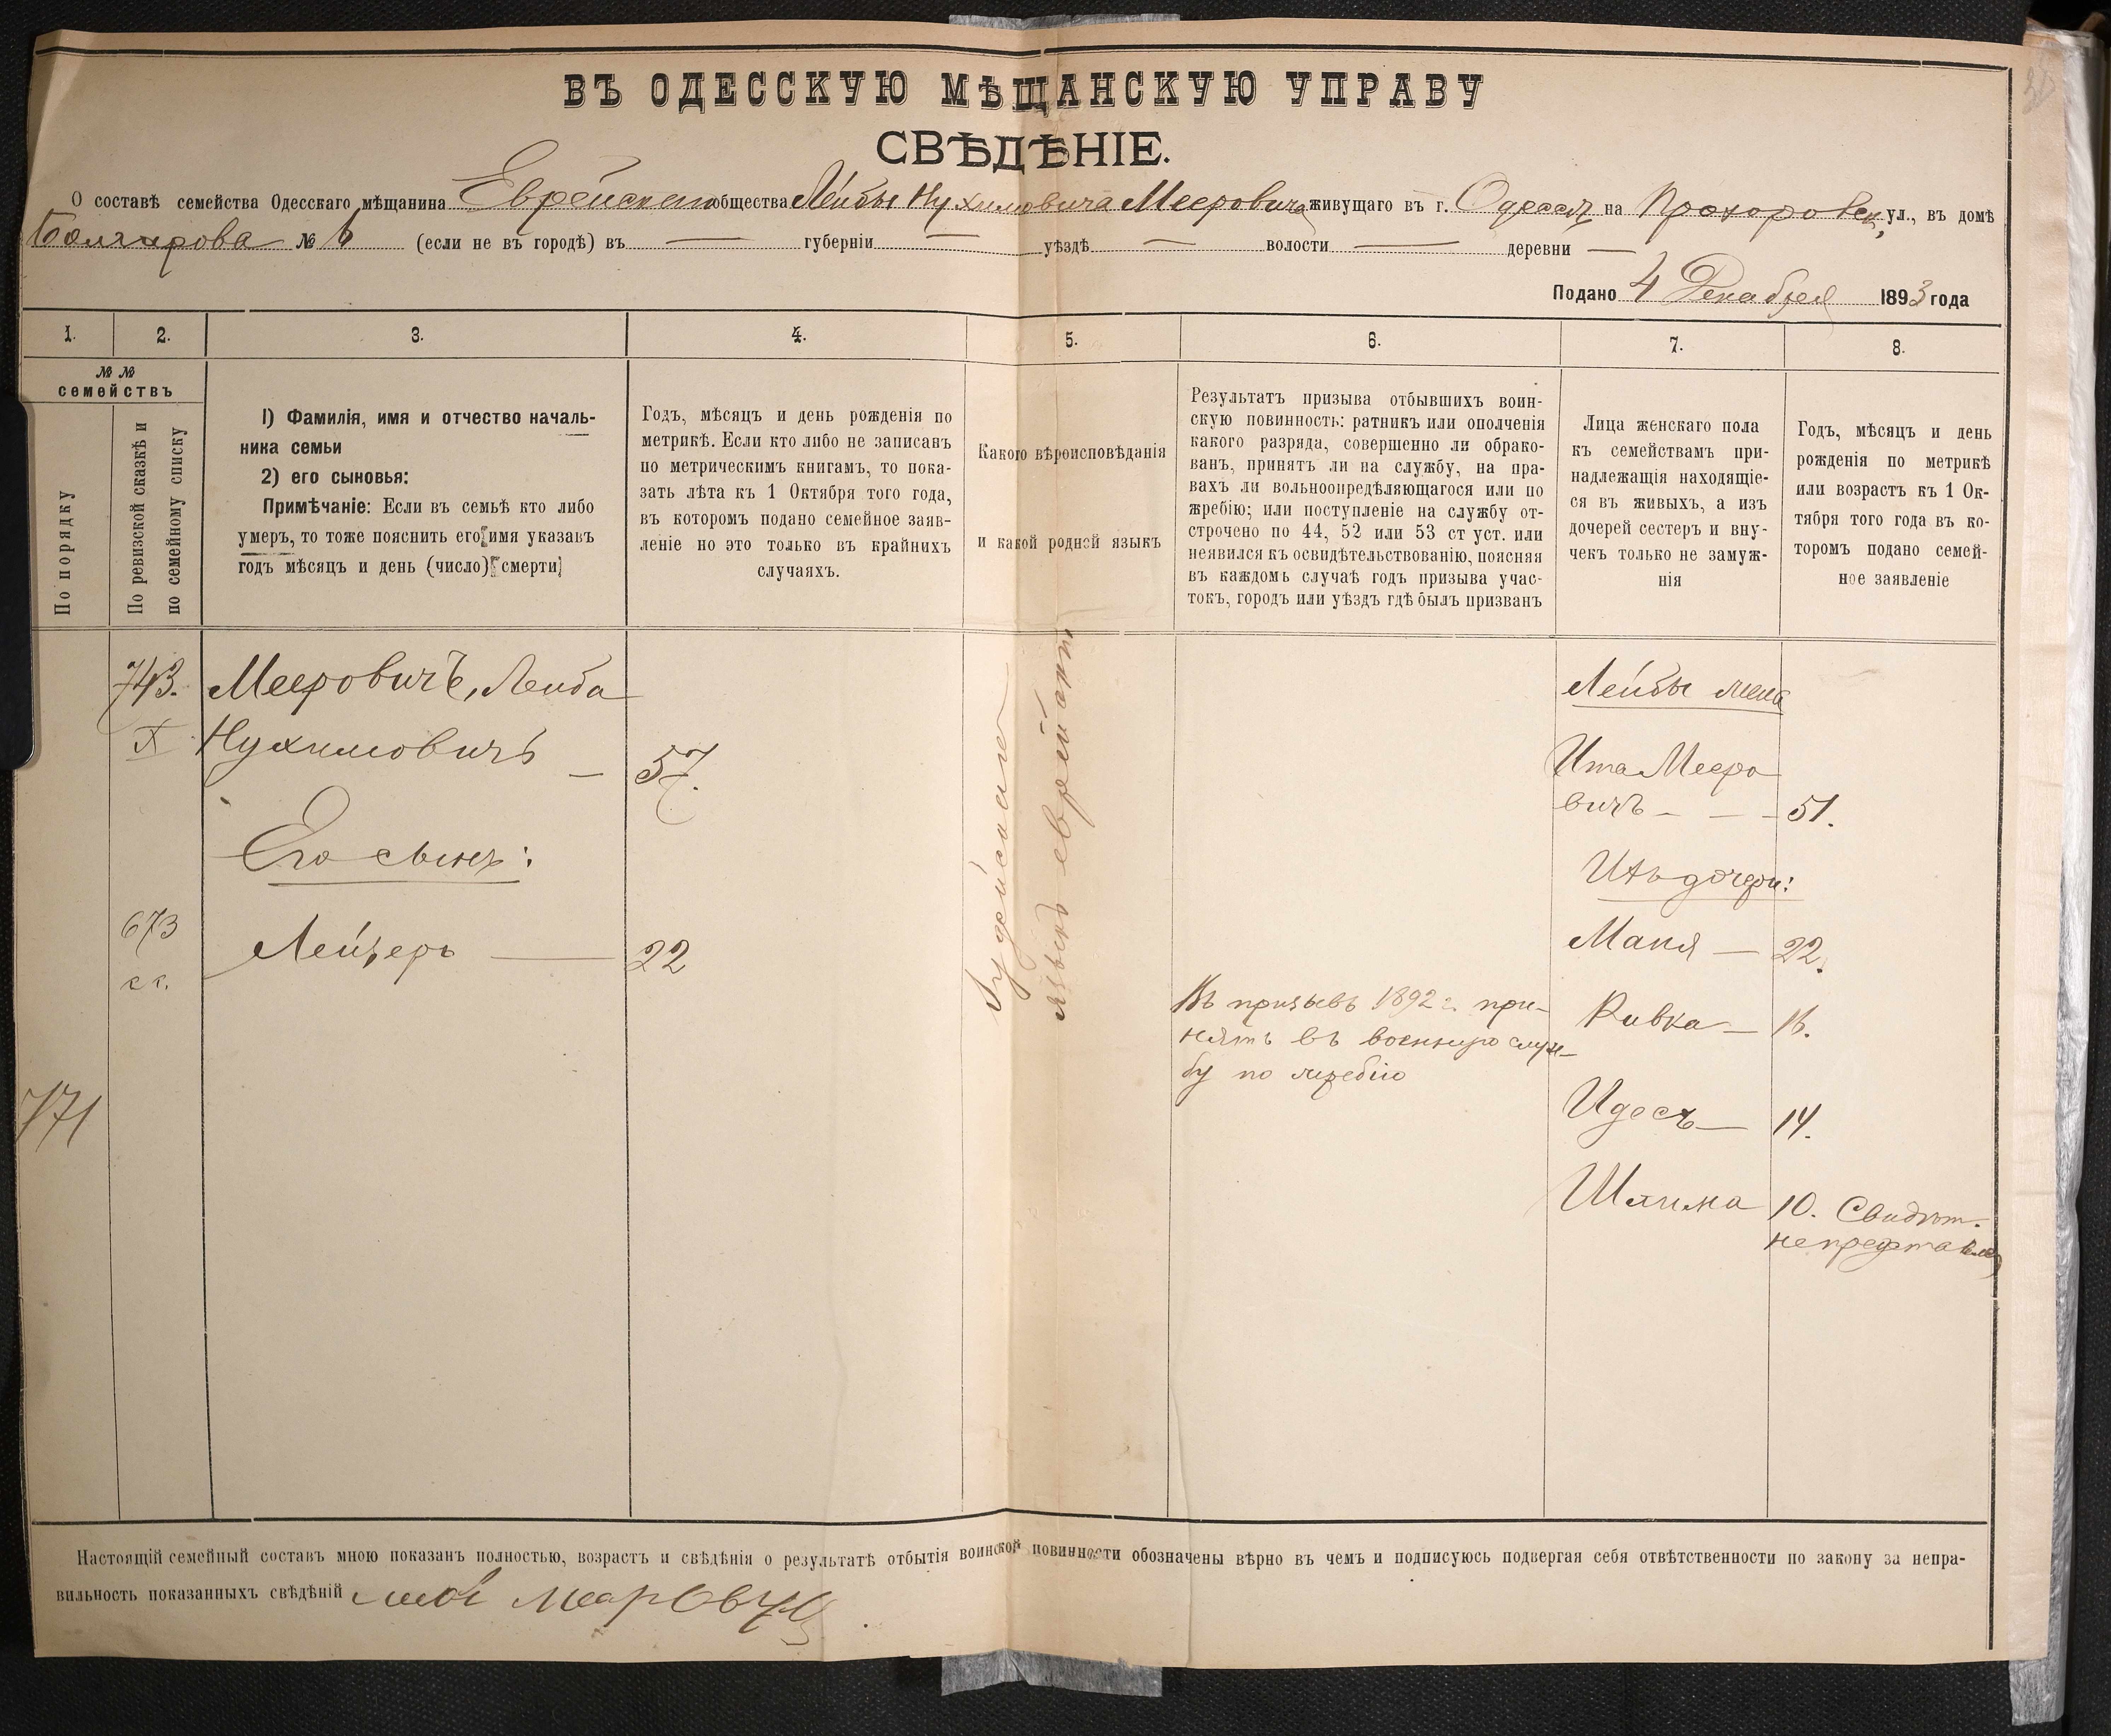 ВЪ ОДЕССКУЮ МѢЩАНСКУЮ УПРАВУ
СВѢДѢНІЕ.
О составѣ семейства Одесскаго мѣщанина Еврейскаго общества Лейбы Нухимовича Мееровича живущаго въ г. Одессѣ на Прохоровск. ул., въ домѣ
№ 6 (если не въ городѣ) въ — губерніи — уѣздѣ — волости — деревни —
Подано 4 Декабря 1893 года
1. 2. 3. 4. 5. 6. 7. 8.
№ №
семействъ
По порядку
По ревизской сказкѣ и
по семейному списку
1) Фамилія, имя и отчество началь-
ника семьи
2) его сыновья:
Примѣчаніе: Если въ семьѣ кто либо
умеръ, то тоже пояснить его имя указавъ
годъ мѣсяцъ и день (число) смерти
Годъ, мѣсяцъ и день рожденія по
метрикѣ. Если кто либо не записанъ
по метрическимъ книгамъ, то пока-
зать лѣта къ 1 Октября того года,
въ которомъ подано семейное заяв-
леніе но это только въ крайнихъ
случаяхъ.
Какого вѣроисповѣданія
и какой родной языкъ
Результатъ призыва отбывшихъ воин-
скую повинность: ратникъ или ополченія
какого разряда, совершенно ли обрако-
ванъ, принятъ ли на службу, на пра-
вахъ ли вольноопредѣляющагося или по
жребію; или поступленіе на службу от-
строчено по 44, 52 или 53 ст уст. или
неявился къ освидѣтельствованію, поясняя
въ каждомъ случаѣ годъ призыва учас-
токъ, городъ или уѣздъ гдѣ былъ призванъ
Лица женскаго пола
къ семействамъ при-
надлежащія находящіе-
ся въ живыхъ, а изъ
дочерей сестеръ и вну-
чекъ только не замуж-
нія
Годъ, мѣсяцъ и день
рожденія по метрикѣ
или возрастъ къ 1 Ок-
тября того года въ ко-
торомъ подано семей-
ное заявленіе
743.
X
673
сс.
771
Мееровичъ, Лейба
Нухимовичъ — 57.
Его сынъ:
Лейзеръ — 22
Іудейскаго
языкъ еврейскій
Въ призывъ 1892 г. при-
нятъ въ военную служ-
бу по жребію
Лейбы жена
Ита Мееро
вичъ — — — 51.
Ихъ дочери:
Маня — 22.
Ривка — 16.
Идесъ — 14.
Шлима 10. Свидѣт.
непредставлен
Настоящій семейный составъ мною показанъ полностью, возрастъ и свѣдѣнія о результатѣ отбытія воинской повинности обозначены вѣрно въ чемъ и подписуюсь подвергая себя отвѣтственности по закону за непра-
вильность показанныхъ свѣдѣній